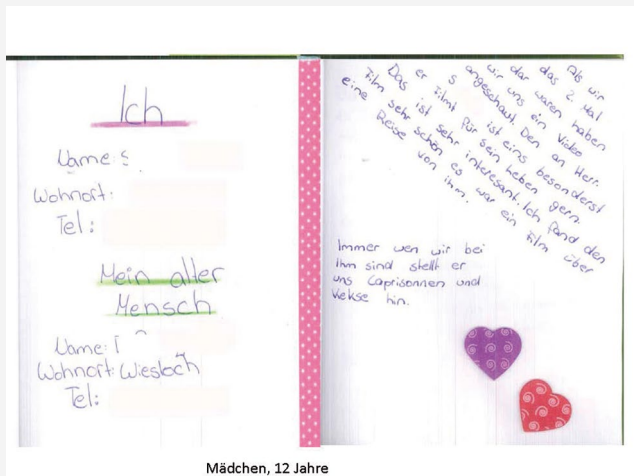 Ich
Name: S
Wohnort:
Tel:
Mein alter
Mensch
Name: T
Wohnort: Wiesloch
Tel:
Als wir
das 2. Mal
dar waren haben
wir uns ein Video
angeschaut. Den an Herr.
S ist eins besonderst
er Filmt für sein leben gern.
Das ist sehr interesant. Ich fand den
Film sehr schön es war ein Film über
eine Reise von ihm.
Immer wen wir bei
ihm sind stellt er
uns Caprisonnen und
Kekse hin.
Mädchen, 12 Jahre